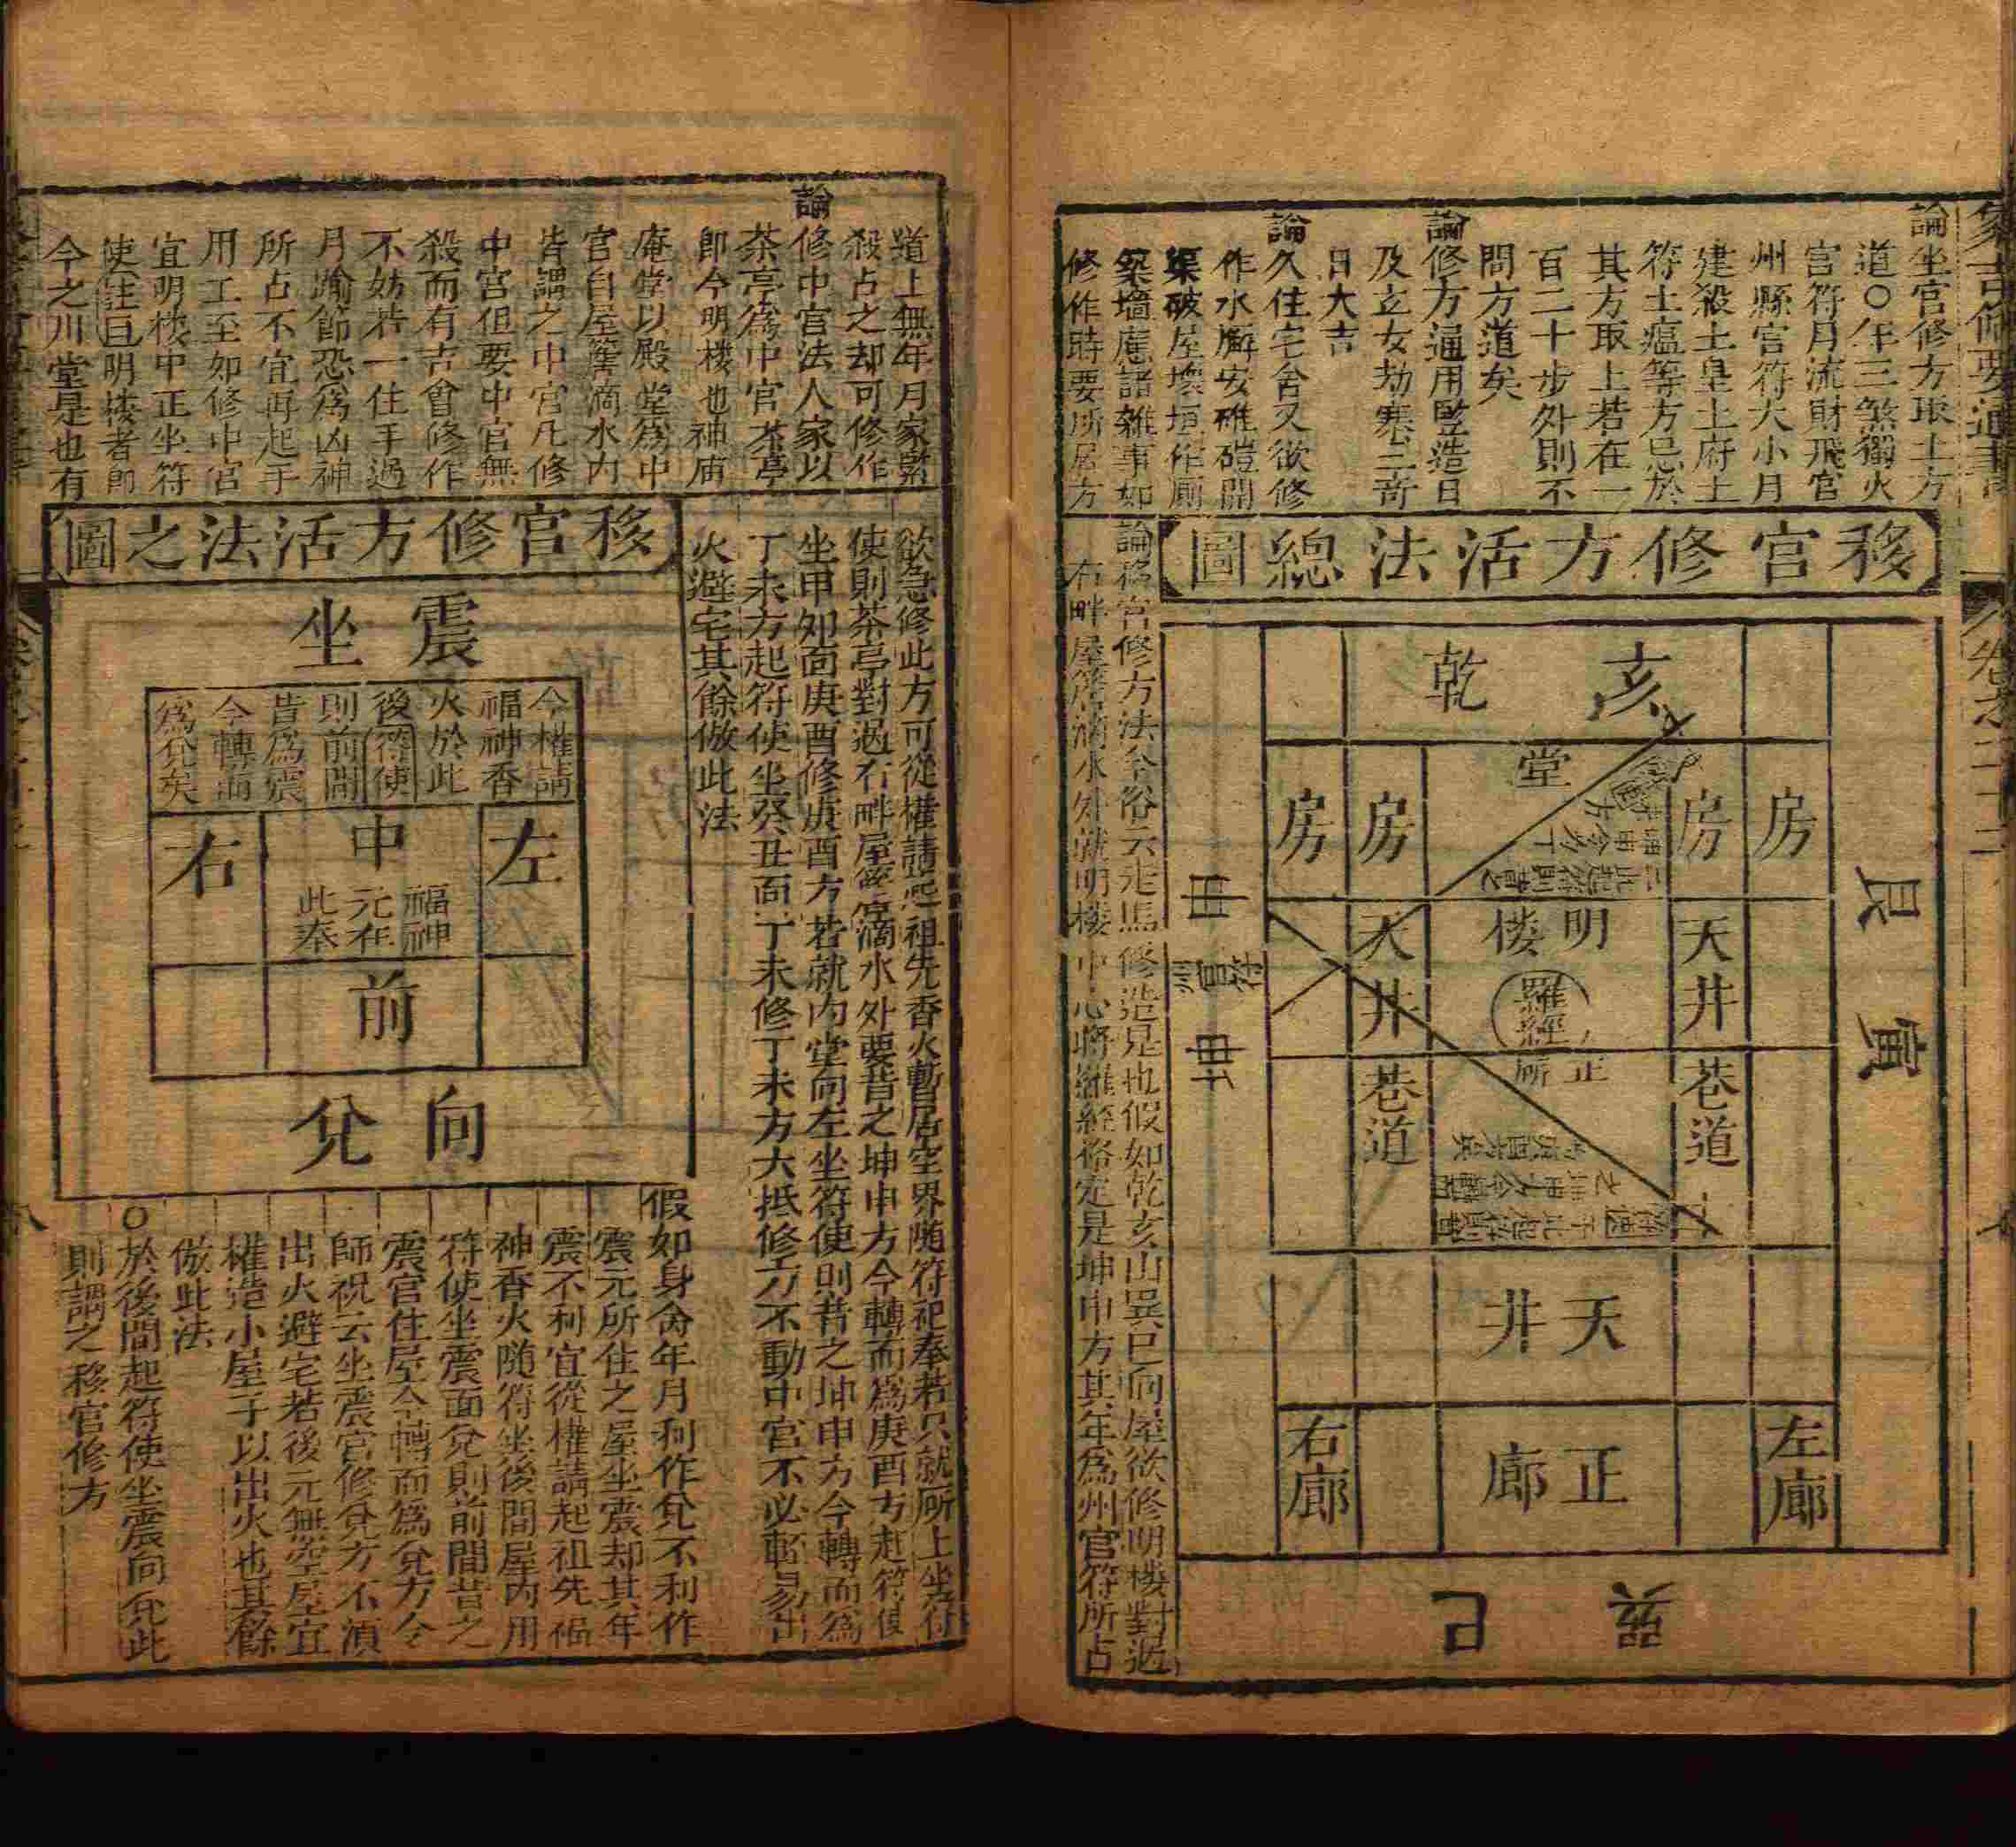 論坐宮修方取土方
道〇年三煞獨火
官符月流財飛官
州縣官符大小月
建殺土皇土府土
符土瘟等方忌於
其方取土若在一
百二十步外則不
問方道矣
論修方通用豎造日
及立女劫塞三奇
日大吉
論久住宅舍又欲修
作水廨安碓磑開
渠破屋壞垣作厠
築墻應諸雜事如
修作時要所居方
移宮修方活法總圖
亥 乾
堂
房 房 房 房
明楼
羅經
正所
天井 天井
巷道 巷道
天井
左廊 正廊 右廊
艮 寅
申 坤
州官符
巽 巳
論移宮修方法今俗云走馬修造是也假如乾亥山巽巳向屋欲修明楼對過
右畔屋簷滴水外就明楼中心將羅經格定是坤申方其年為州官符所占
道上無年月家緊
殺占之却可修作
論修中宮法人家以
茶亭為中宮茶亭
即今明楼也神庙
庵堂以殿堂為中
宮自屋簷滴水內
皆謂之中宮凡修
中宮但要中宮無
殺而有吉會修作
不妨若一住手過
月踰節恐為凶神
所占不宜再起手
用工至如修中宮
宜明楼中正坐符
使註曰明楼者即
今之川堂是也有
欲急修此方可從權請起祖先香火暫居空界随符祀奉若只就所上坐符
使則茶亭對過右畔屋簷滴水外要昔之坤申方今轉而為庚酉方起符使
坐甲如面庚酉修庚酉方若就內堂向左坐符使則昔之坤申方今轉而為
丁未方起符使坐癸丑面丁未修丁未方大抵修方不動中宮不必輕易出
火避宅其餘倣此法
移宮修方活法之圖
坐震
今權請
福神香
火於此
後符使
則前間
昔為震
今轉而
為兌矣
左 中 右
福神
元在
此奉
前
向兌
假如身命年月利作兌不利作
震元所住之屋坐震却其年
震不利宜從權請起祖先福
神香火随符坐後間屋內用
符使坐震面兌則前間昔之
震宮住屋今轉而為兌方今
師祝云坐震宮修兌方不湏
出火避宅若後元無空屋宜
權造小屋子以出火也其餘
倣此法
〇於後間起符使坐震向兌此
則謂之移宮修方